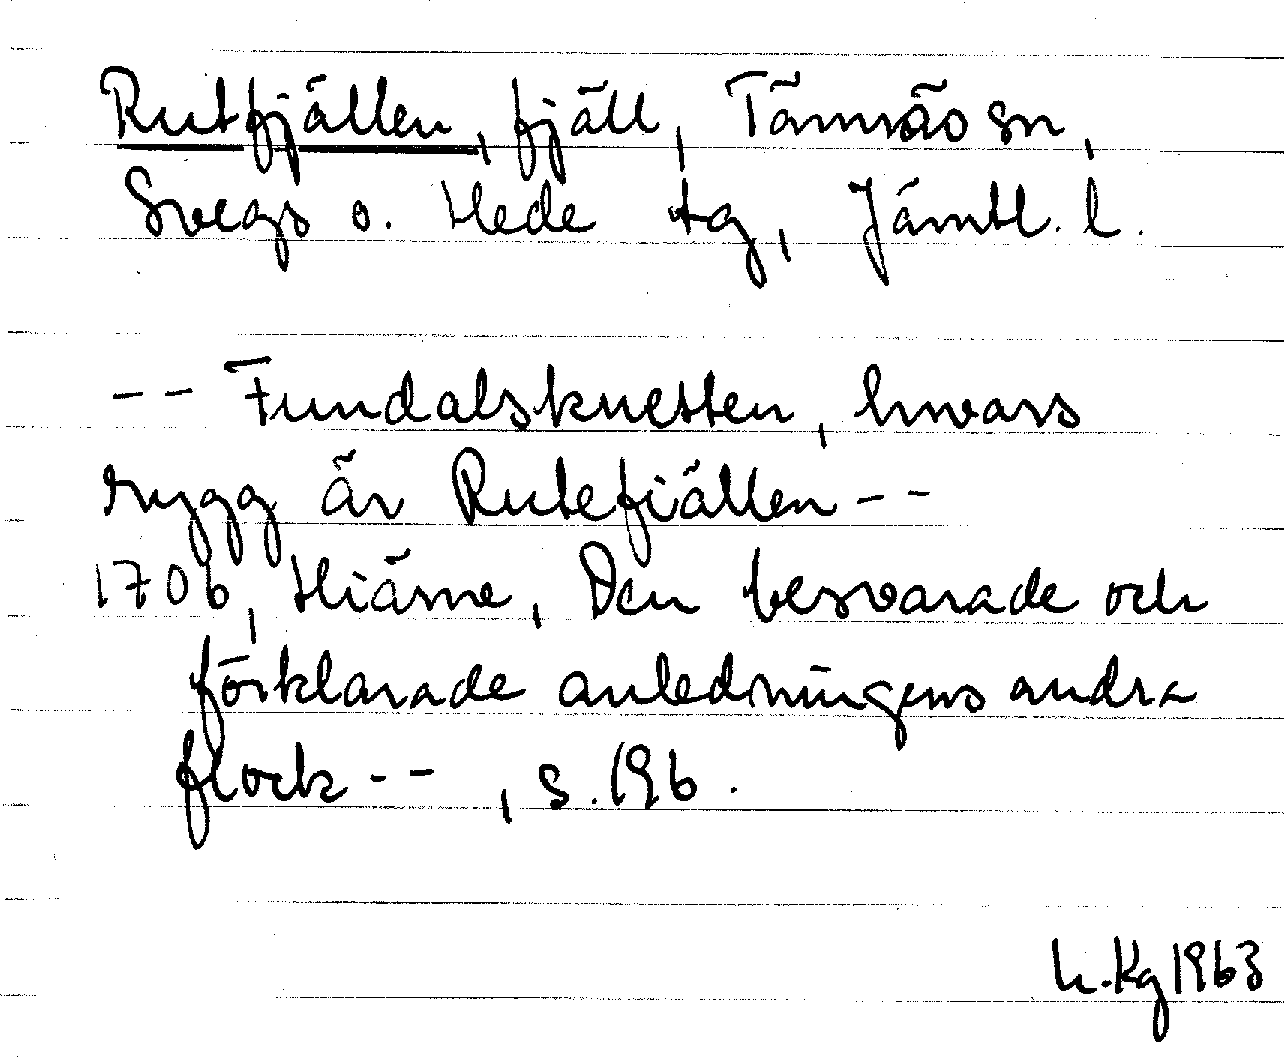 Rutfjällen, fjäll, Tännäs sn,
Svegs o. Hede tg, Jämtl. l.
-- Fundalsknetten, hwars
rygg är Rutefiällen --
1706, Hiärne, Den besvarade och
förklarade anledningens andra
flock --, s. 196.
h. Kg 1963